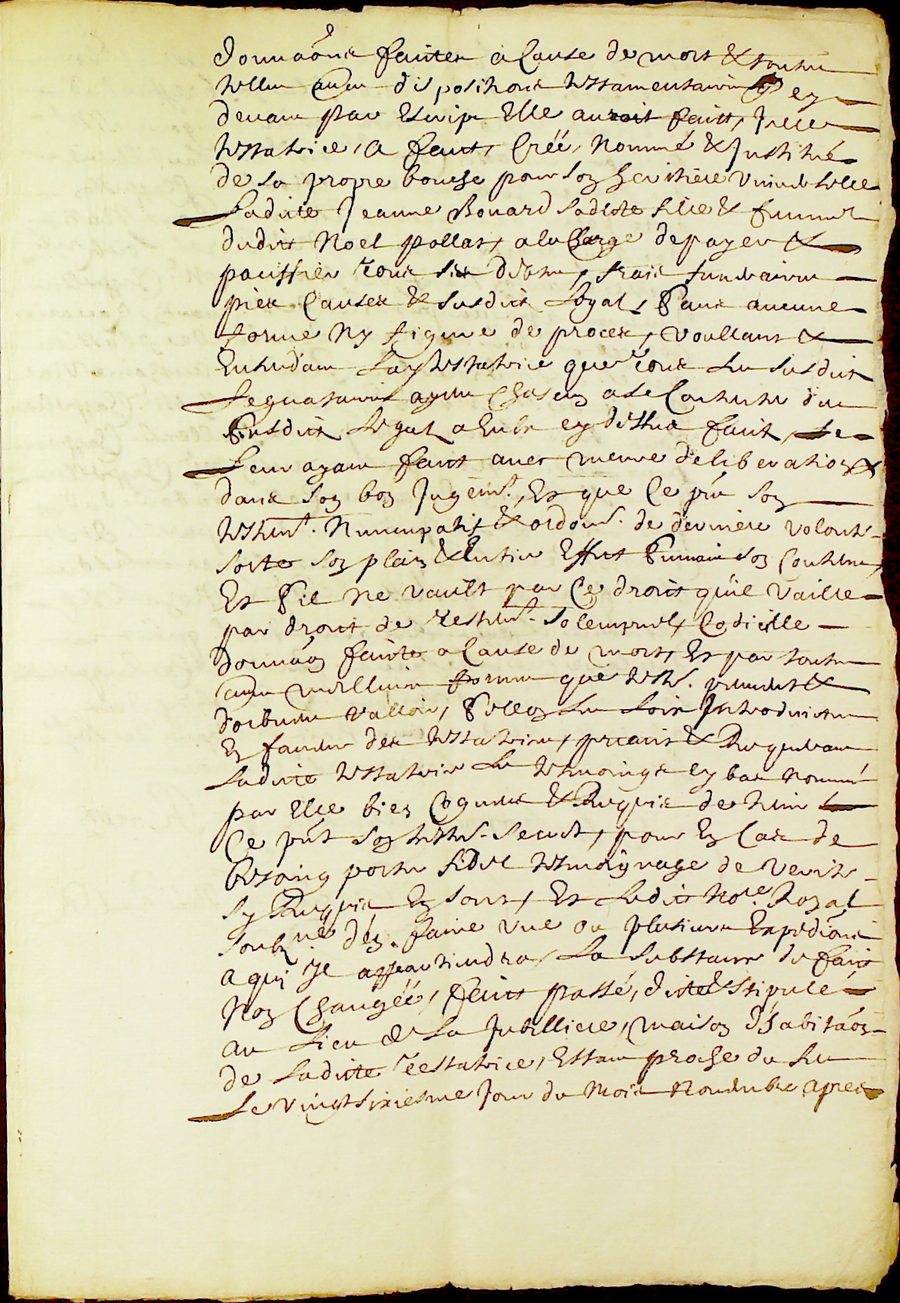 donnaôns faites a cause de mort & toutes
telles autres dispositions testamentaires q ey
devant par escript elle auroit faict, Icelle
testatrice, a faict, créé, nommé & Institué
de sa propre bouche pour son heritiere universelle
Ladicte Jeanne Bouard sadicte fille & femme
dudict Noel pollat, a la charge de payer &
paciffier tous ses debtes, frais funeraires
pies causes & susdict Legat, sans aucune
forme ny figure de proces, voullant &
Entendant Lad testatrice que tous les susdict
Legataires ayent chascun a se contenter du
susdict Legat a luy en dessus faict, Le
Leur ayant faict avec meure deliberation &
dans son bon Jugemt, Et que ce pnt son
testemt. Nuncupatif & ordonn. de derniere volonte
sorte son plain & Entier Effect suivant son contenu,
Et s'il ne vault par ce droict qu'il vaille
par droict de testemt. solempnel, Codicille
donnaôn faicte a cause de mort, Et par toutes
autres meilleures formes que test. peuvent &
doibvent valloir, selon les Loix Introduictes
En faveur des testateurs, priant & Requerant
Ladicte testatrice les tesmoings cy bas nommé
par elle bien cognus & Requis de tenir
Ce pnt son testmt. secret, pour En cas de
besoing porter fidel tesmoignage de verité
sy Requis En sont, Et Ledict Nore. Royal
soubne. des. faire une ou plusieurs Expediôns
a qui Il appartiendra, La substance du faict
Non changée, faict passé, dicté & stipulé
au Lieu de La Jubilliere, maison d'habitaôn
de Ladicte testatrice, Estant proche du feu
Le vingt sixiesme Jour du mois Novembre apres